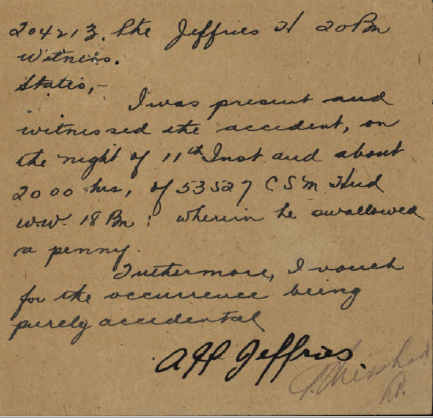 204213. Pte Jeffries H 20 Bn
Witness.
States,-
I was present and
witnessed the accident, on
the night of 11th Inst and about
2000 hrs, of 53527 C S M Hud
W.W. 18 Bn: wherein he swallowed
a penny.
Futhermore, I vouch
for the occurrence being
purely accidental
A H Jeffries.